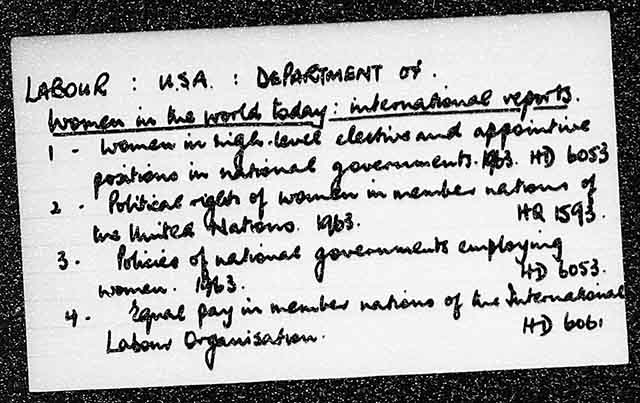 LABOUR : U.S.A. : DEPARTMENT of.
Women in the world today: international reports.
1 - Women in high-level elective and appointive
positions in national governments. 1963. HD 6053
2 - Political rights of women in member nations of
the United Nations. 1963. HQ 1593.
3 - Policies of national governments employing
women. 1963. HD 6053.
4 - Equal pay in member nations of the International
Labour Organisation. HD 6061